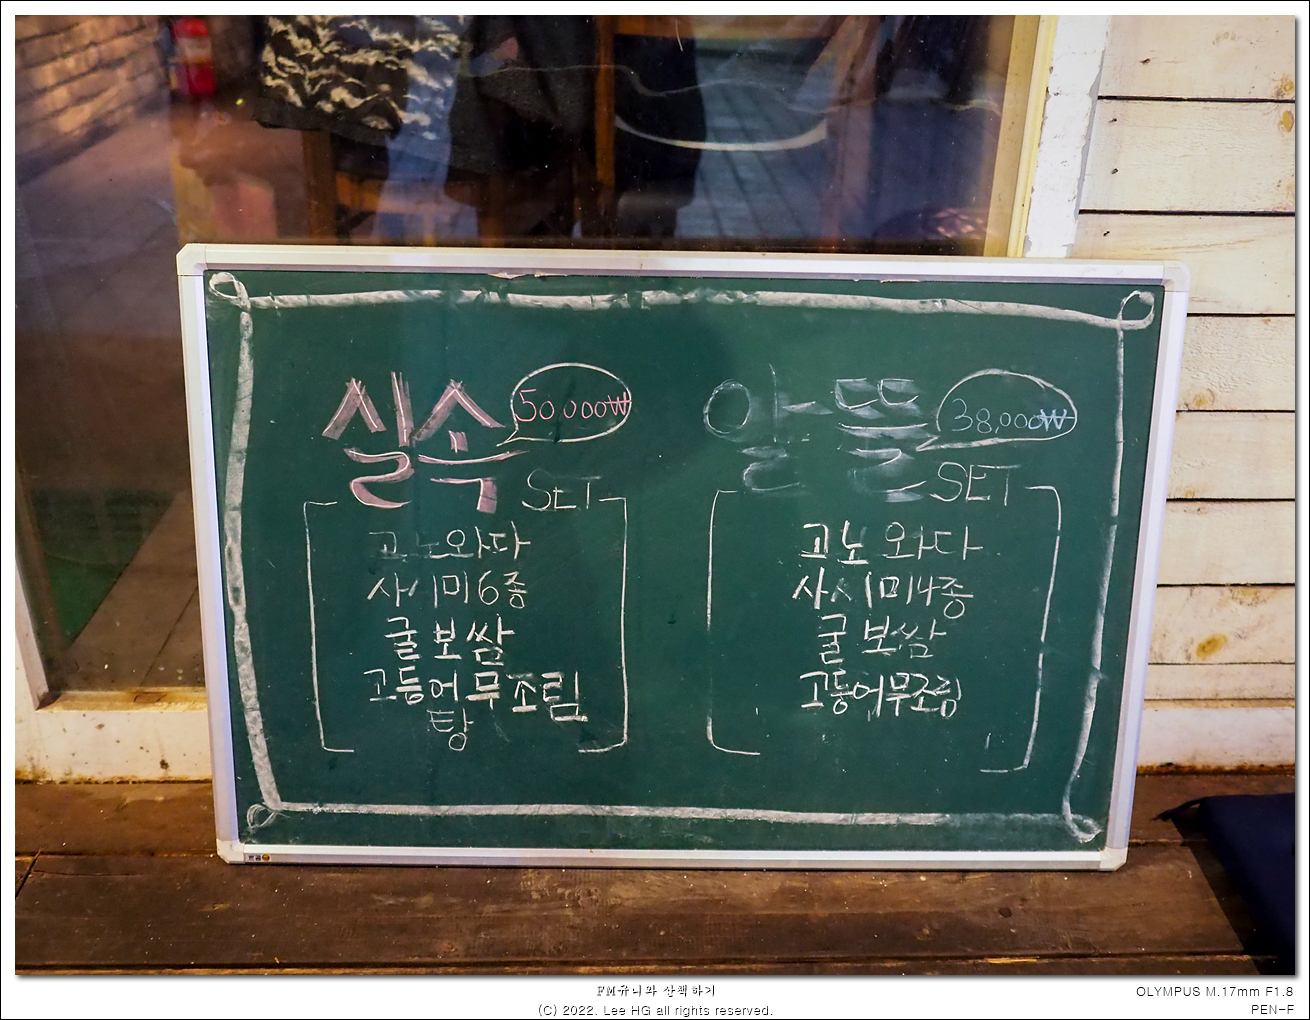 실속
50,000₩
SET
고노와다
사시미6종
굴보쌈
고등어무조림
탕
알뜰
38,000₩
SET
고노와다
사시미4종
굴보쌈
고등어무조림
FM유니와 산책하기
(C) 2022. Lee HG all rights reserved.
OLYMPUS M.17mm F1.8
PEN-F